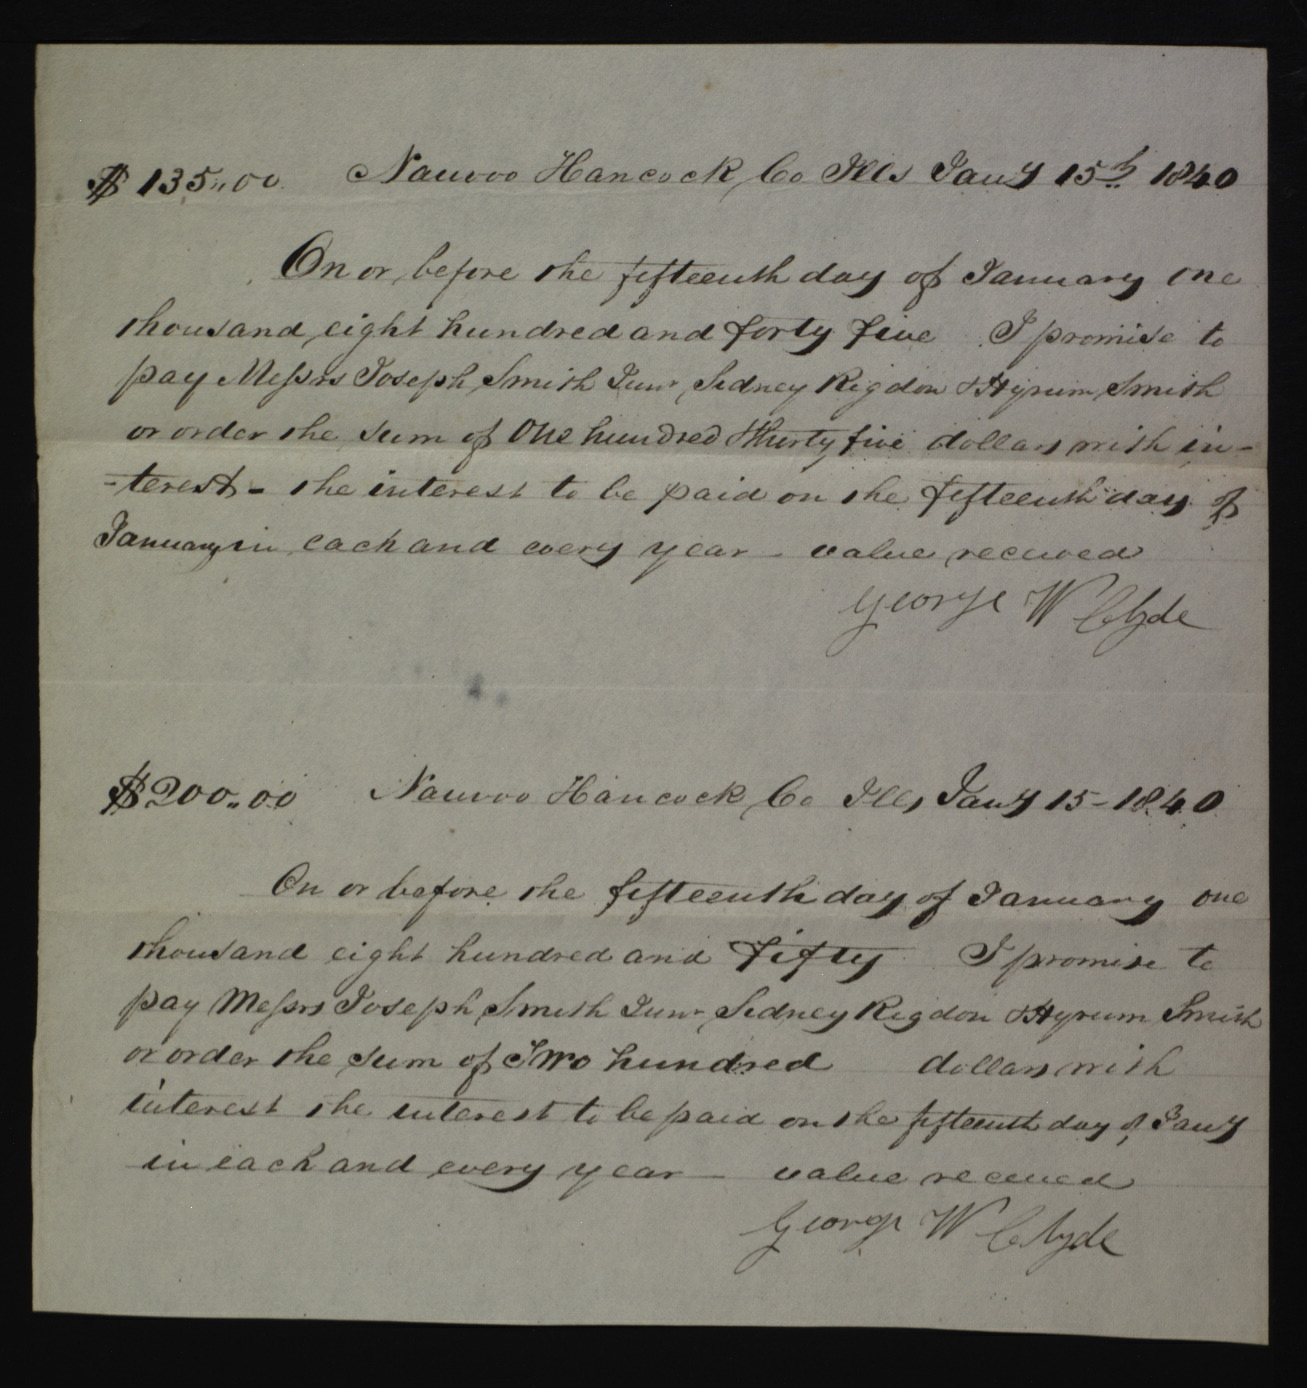 $135,,00 Nauvoo Hancock Co Ills Jany 15th 1840
On or before the fifteenth day of January one
thousand eight hundred and forty five I promise to
pay Messrs Joseph Smith Junr Sidney Rigdon & Hyrum Smith
or order the sum of One hundred Thirty five dollars with in-
-terest- the interest to be paid on the fifteenth day of
January in each and every year - value received
George W Clyde
$200,,00 Nauvoo Hancock Co Ills Jany 15-1840
On or before the fifteenth day of January one
thousand eight hundred and fifty I promise to
pay Messrs Joseph Smith Junr Sidney Rigdon & Hyrum Smith
or order the sum of Two hundred dollars with
interest the interest to be paid on the fifteenth day of Jany
in each and every year - value received
George W Clyde